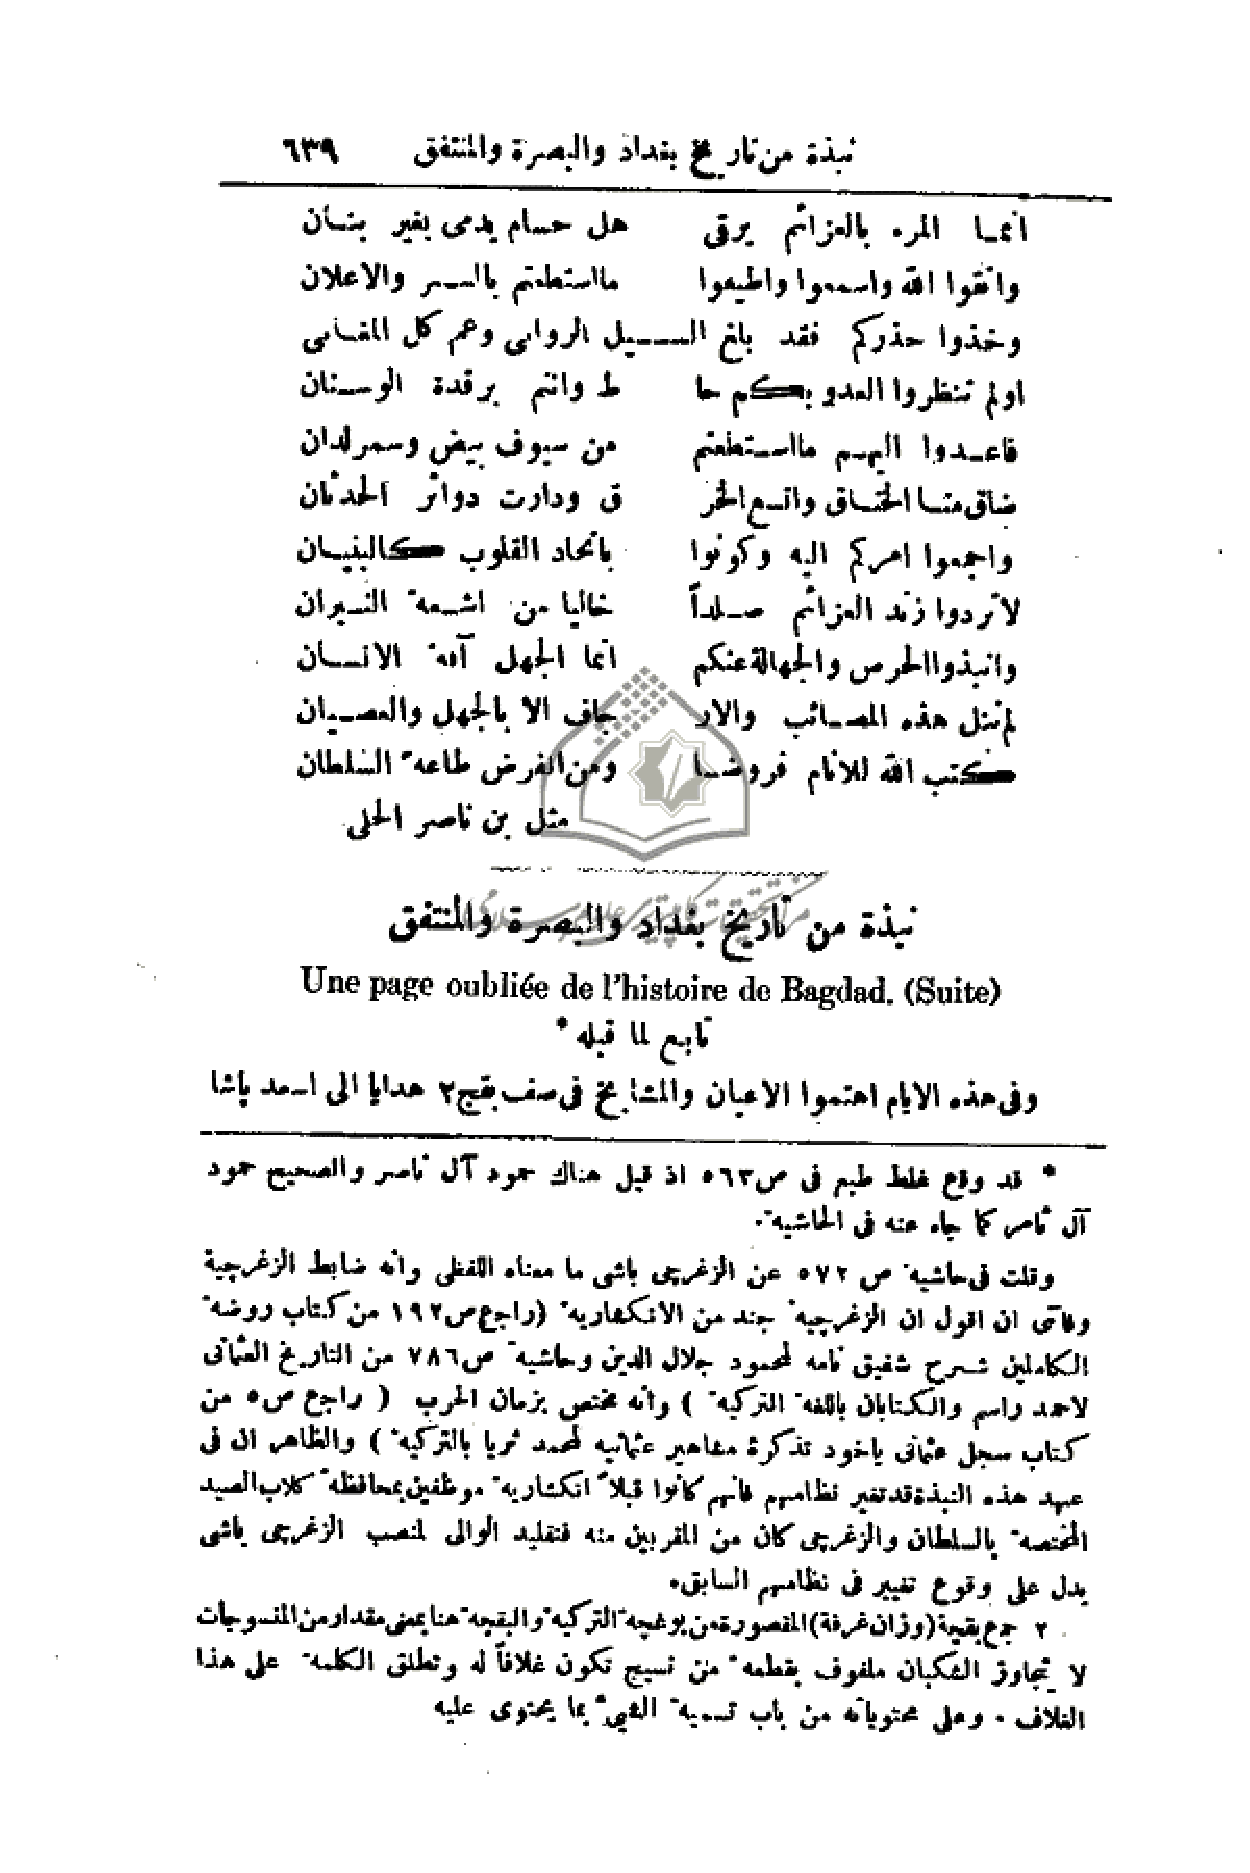 نبذة من تاريخ بغداد والبصرة والمنتفق ٦٣٩
انمـا المرء بالعزائم يرقى هل حسام يدمى بغير بنـان
واتقوا الله واسمعوا واطيعوا مااستطعتم بالسـر والاعلان
وخذوا حذركم فقد بلغ السـيل الروابى وعم كل المغـانى
اولم تنظروا العدو بكم حا ط وانتم برقدة الوسـنان
فاعـدوا اليهـم مااسـتطعتم من سيوف بيض وسمر لدان
ضاق منـا الخنـاق واتسـع الخر ق ودارت دوائر الحدثان
واجمعوا امركم اليه وكونوا باتحاد القلوب كالبنيـان
لاتردوا زند العزائم صـلداً خاليا من اشـعة النـيران
وانبذوا الحرص والجهالة عنكم انما الجهل آفة الانـسان
لم تنل هذه المصـائب والار جاف الا بالجهل والعصـيان
كتب الله للانام فروضـا ومن الفرض طاعة السلطان
مثل بن ناصر الحلى
نبذة من تاريخ بغداد والبصرة والمنتفق
Une page oubliée de l'histoire de Bagdad. (Suite)
تابع لما قبله *
وفى هذه الايام اهتموا الاعيان والمشايخ فى صف بقج٢ هدايا الى اسعد پاشا
* قد وقع غلط طبع فى ص ٥٦٣ اذ قيل هناك حمود آل ناصر والصحيح حمود
آل ثامر كما جاء عنه فى الحاشية.
وقلت فى حاشية ص ٥٧٢ عن الزغرجى باشى ما معناه اللفظى وانه ضابط الزغرجية
وفاتنى ان اقول ان الزغرجية جند من الانكشارية (راجع ص ١٩٢ من كتاب روضة
الكاملين شـرح شفيق نامه لمحمود جلال الدين وحاشية ص ٧٨٦ من التاريخ العثمانى
لاحمد راسم والكتابان باللغة التركية ) وانه مختص بزمان الحرب ( راجع ص ٥ من
كتاب سجل عثمانى ياخود تذكرة مشاهير عثمانيه لمحمد ثريا بالتركية ) والظاهر ان فى
عهد هذه النبذة قد تغير نظامهم فانهم كانوا قبلاً انكشارية موظفين بمحافظة كلاب الصيد
المختصة بالسلطان والزغرجى كان من المقربين منه فتقليد الوالى لمنصب الزغرجى باشى
يدل على وقوع تغيير فى نظامهم السابق.
٢ جمع بقچة (وزان غرفة) المقصورة من بوغچه التركية والبقچة هنا بمعنى مقدار من المنسوجات
لا يتجاوز الشكبان ملفوف بقطعة من نسيج تكون غلافاً له وتطلق الكلمة على هذا
الغلاف . وعلى محتوياته من باب تسمية الشىء بما يحتوى عليه